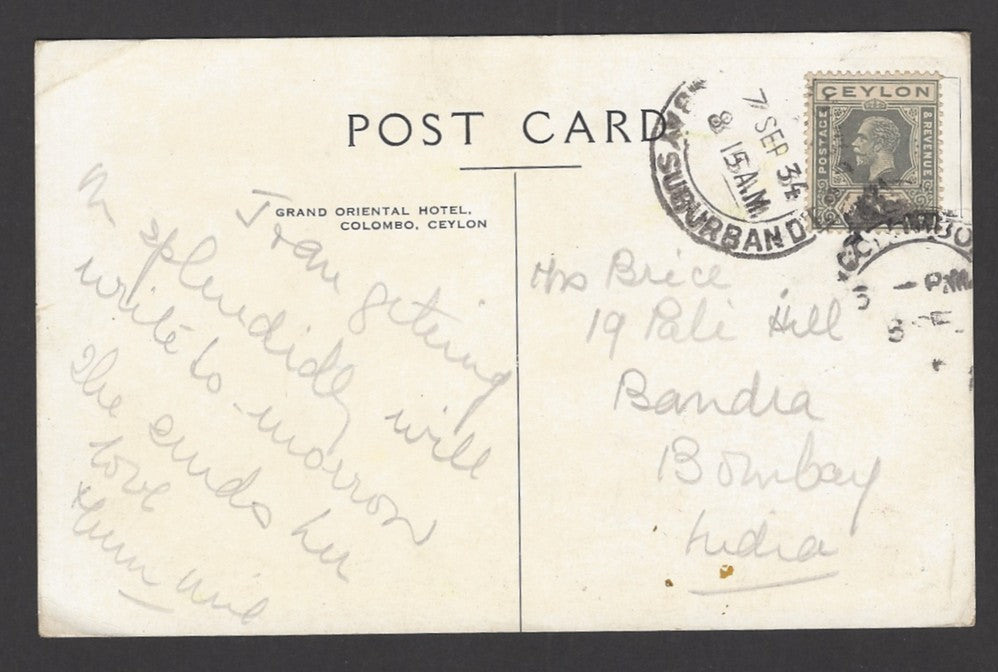 POST CARD
GRAND ORIENTAL HOTEL,
COLOMBO, CEYLON
CEYLON
POSTAGE
& REVENUE
7 SEP 34
8 15 A.M.
SUBURBAN
COLOMBO
I am getting
on splendidly will
write to-morrow
She sends her
love
Mrs Brice
19 Pali Hill
Bandra
Bombay
India